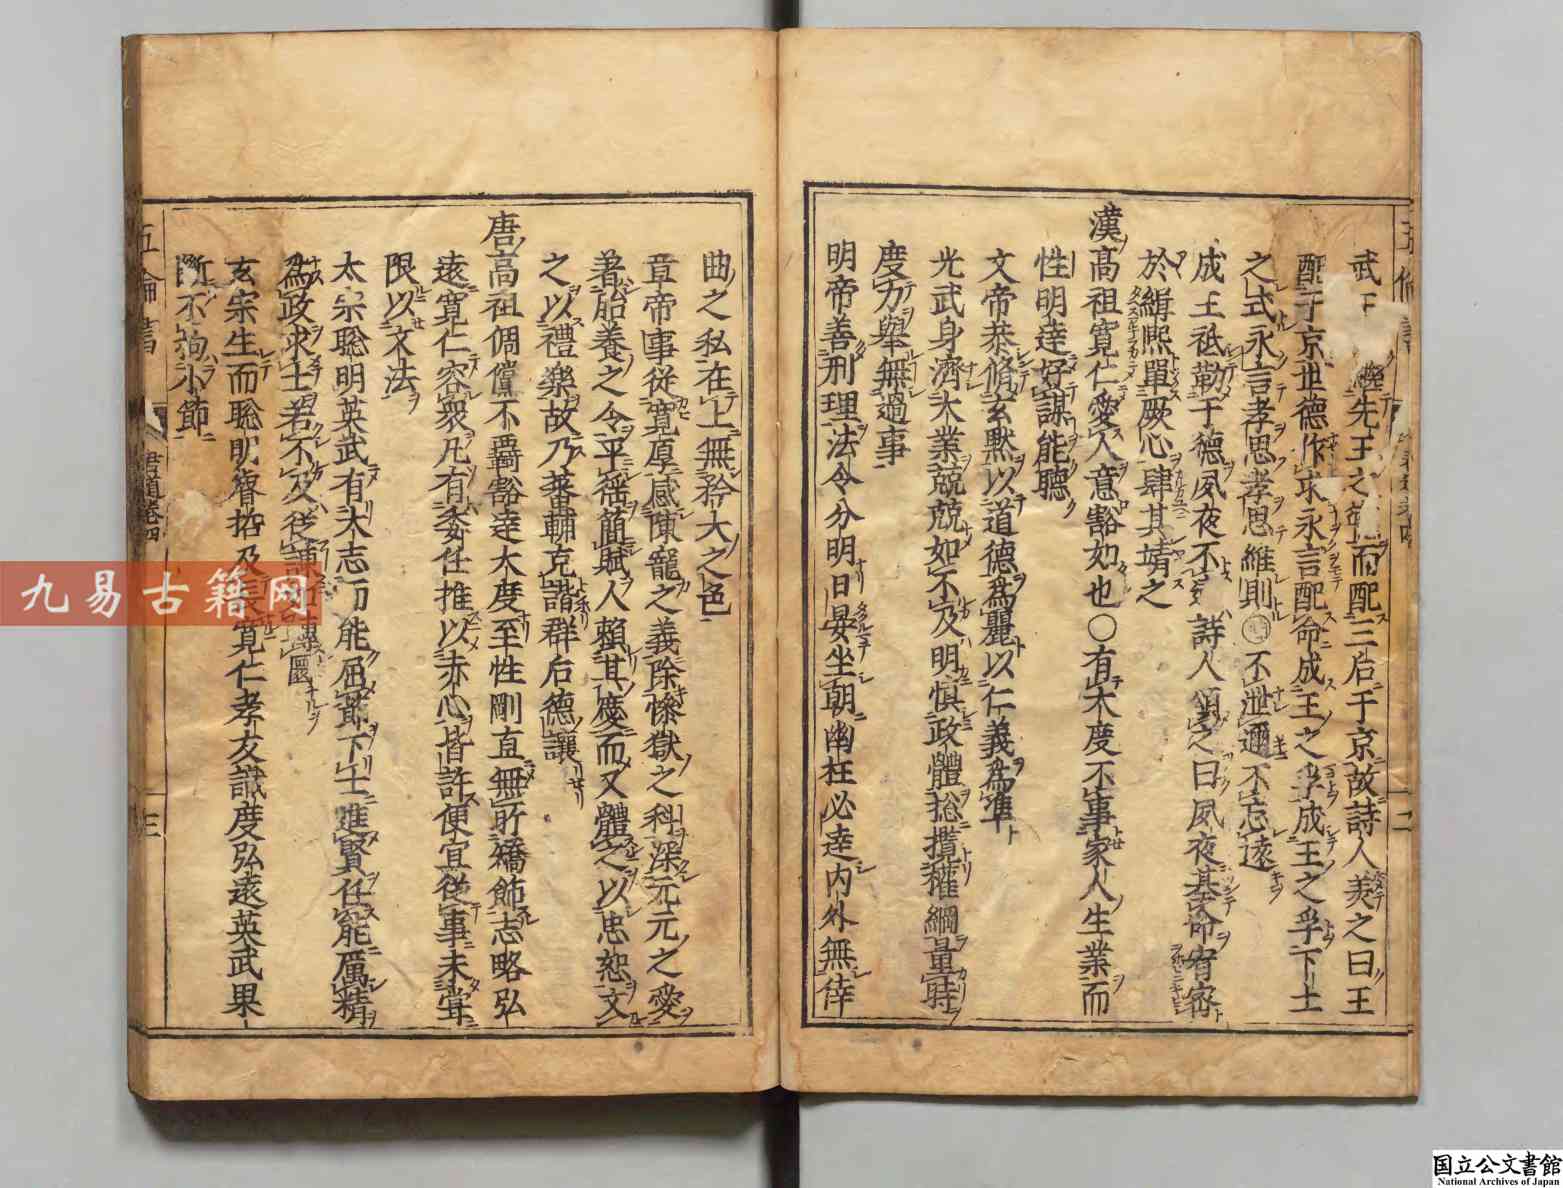 武王 先王之 而配三后于京故詩人美之曰王
配于京世德作求永言配命成王之孚成王之孚下土
之式永言孝思孝思維則○不泄邇不忘遠
成王祗勤于德夙夜不 詩人頌之曰夙夜基命宥密
於緝熙單厥心肆其靖之
漢高祖寬仁愛人意豁如也○有大度不事家人生業而
性明達好謀能聽
文帝恭脩玄默以道德為麗以仁義為準
光武身濟大業兢兢如不及明慎政體揔攬權綱量時
度力舉無過事
明帝善刑理法令分明日晏坐朝幽枉必達內外無倖
曲之私在上無矜大之色
章帝事從寬厚感陳寵之義除慘獄之科深元元之愛
著胎養之令平徭簡賦人賴其慶而又體之以忠恕文
之以禮樂故乃蕃輔克諧群后德讓
唐高祖倜儻不羈豁達大度至性剛直無所矯飾志略弘
遠寬仁容眾凡有委任推以赤心皆許便宜從事未嘗
限以文法
太宗聡明英武有大志而能屈節下士進賢任能厲精
為政求士若不及從諫如轉圜
玄宗生而聡明睿哲及長寬仁孝友識度弘遠英武果
斷不拘小節
五倫書
君道卷四
三
二
九易古籍网
国立公文書館
National Archives of Japan